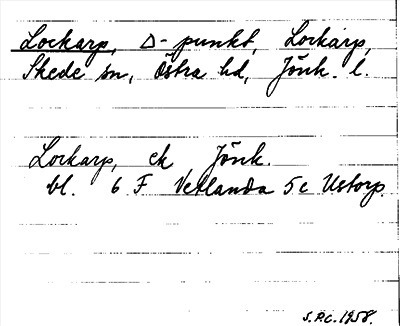 Lockarp, △-punkt, Lockarp,
Skede sn, Östra hd, Jönk. l.
Lockarp, ek Jönk.
bl. 6 F Vetlanda 5c Ustorp.
S.P.C. 1958.